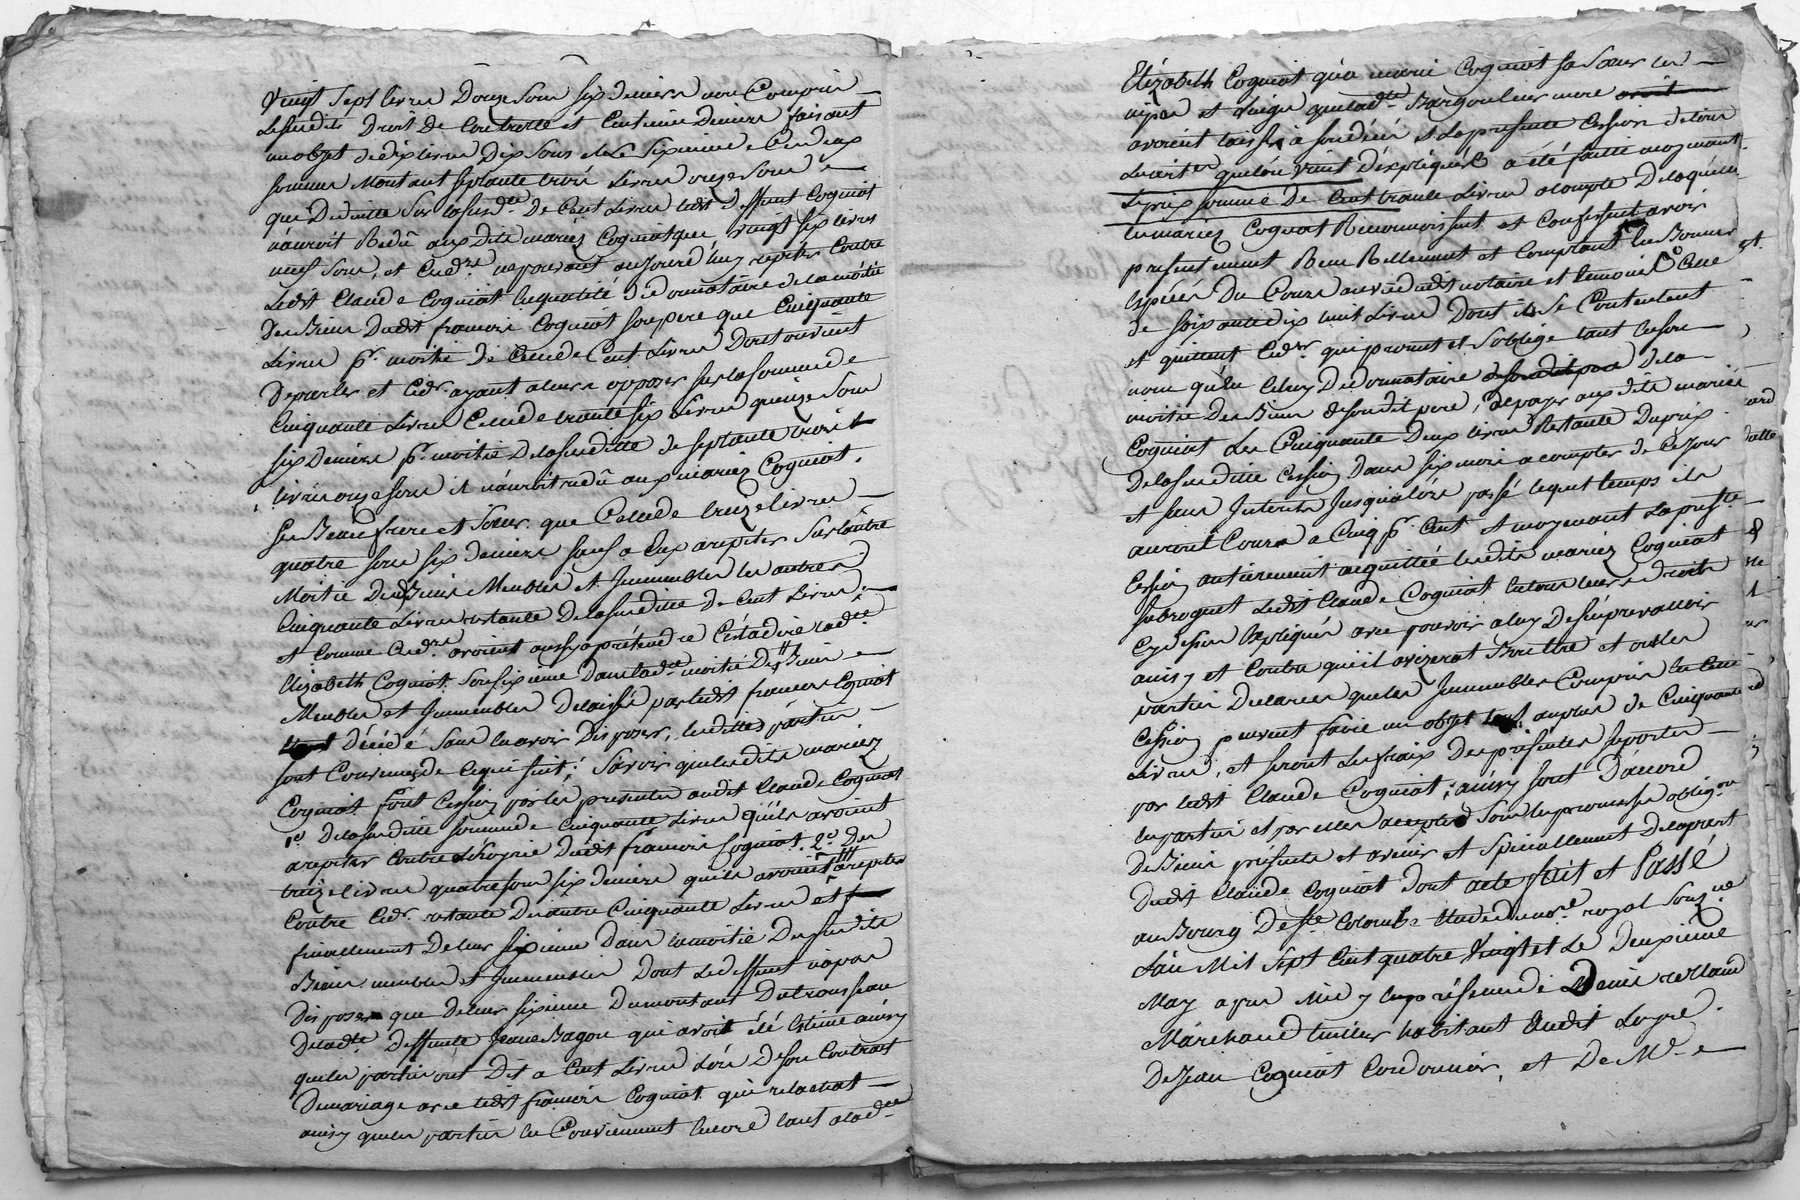 Vingt Sept livres Douze Sous six deniers non Compris
Lesusdits Droit de Controlle et Centieme Deniers faisant
un objet de dix livres Dix Sous et le Sixieme de Ces deux
sommes Montant septante trois Livres onze Sous
que Deduitte Sur la susde. De Cent Livres ledt deffunt Coquiat
n'auroit Redû aux dits mariez Coquiat que vingt six livres
neuf Sous, et Cesdrs. ne pouvant aujourd'huy repéter Contre
Ledt Claude Coquiat en qualité de Donnataire de la moitié
Des Biens Dudt françois Coquiat son pere que Cinquante
Livres pr. moitié de Celle de Cent Livres Dont on vient
De parler et Ledr. ayant a leurs opposer sur la somme de
Cinquante Livres Celle de trente six Livres quinze Sous
six Deniers pr. moitié De la susditte de septante trois
livres onze sous il n'auroit redû aux mariez Coquiat
Ses Beau frere et Sœur que Celle de treize livres
quatre sous six deniers sauf a Eux a repéter Sur l'autre
Moitié Desd. Biens Meubles et Immeubles les autres
Cinquante Livres restante De la susditte De Cent Livres,
et Comme Cesdrs. avoient aussy a prétendre C'est a dire lade.
Elizabeth Coquiat Son sixieme Dans lade. moitié Des Biens
Meubles et Immeubles Delaissés par ledt françois Coquiat
Décédé Sans en avoir Disposés, lesdittes parties
sont Convenues de Ce qui suit; Savoir que lesdits mariez
Coquiat font Cession par les presentes audt Claude Coquiat
1o De la susditte somme de Cinquante Livres qu'ils avoient
a repéter Contre L'hoyrie Dudt françois Coquiat. 2o. Des
treize livres quatre sous six deniers qu'ils avoient a repéter
Contre Cedr. restante Des autres Cinquante Livres et
finallement De leur sixieme Dans la moitié Des susdits
Biens meubles et Immeubles Dont Led. deffunt n'a pas
Disposés que De leur sixieme Du montant Du trousseau
De lade. Deffunte Jeanne Bagon qui avoit été Estimé ainsy
que les parties ont Dit a Cent Livres Lors De son Contrat
De mariage avec ledt françois Coquiat que relachat
ainsy que les parties en Conviennent Encore tant a lade.
Elizabeth Coquiat qu'a marie Coquiat sa Sœur les
nipes et linges que lade. Bargon leur mere
avoient laissé à son décés et la presente Cession de tous
Les articles qu'on vient d'expliquer a été faitte moyennant
Le prix somme De Cent trente Livres a Compte De laquelle
les mariez Coquiat Reconnoissent et Confessent avoir
presentement Reçu Réellement et Comptant En Bonnes
Espéces Du Cours au vû dudt notaire et temoins Celle
de soixante dix huit Livres Dont ils Se Contentent
et quittent Cedr. qui promet et S'oblige tant en son
nom qu'en Celuy De Donnataire De la
moitié Des Biens de son dit pere, de payer aux dits mariés
Coquiat Les Cinquante Deux livres Restante Du prix
De la susditte Cession Dans six mois a Compter de Ce Jour
et sans Interets Jusqu'alors passé lequel temps ils
auront Cours a Cinq pr. Cent et moyennant la prste.
Cession antierement acquittée lesdits mariez Coquiat
Subrogent Ledt Claude Coquiat En tous leurs droits
Cy dessus Expliqués avec pouvoir a luy De s'en prevalloir
ainsy et Contre qui il avizerat Bon Etre et ont les
parties Declarées que les Immeubles Compris En Cette
Cession peuvent faire un objet au plus de Cinquante
Livres, et seront Les fraix Des présentes suportes
par ledt Claude Coquiat; ainsy sont D'accord
les parties et par elles accepté Sous les promesses obligon
De Biens présents et avenir et Spéciallement De la part
Dudt Claude Coquiat Dont acte fait et Passé
au Bourg De Ste Colombe Etude du nore. royal Sousne
L'an Mil Sept Cent quatre Vingt et Le Deuxieme
May apres Midy En présence de Denis rolland
Marchand tuillier habitant Audit Lieu
De Jean Coquiat Cordonnier, et De Me